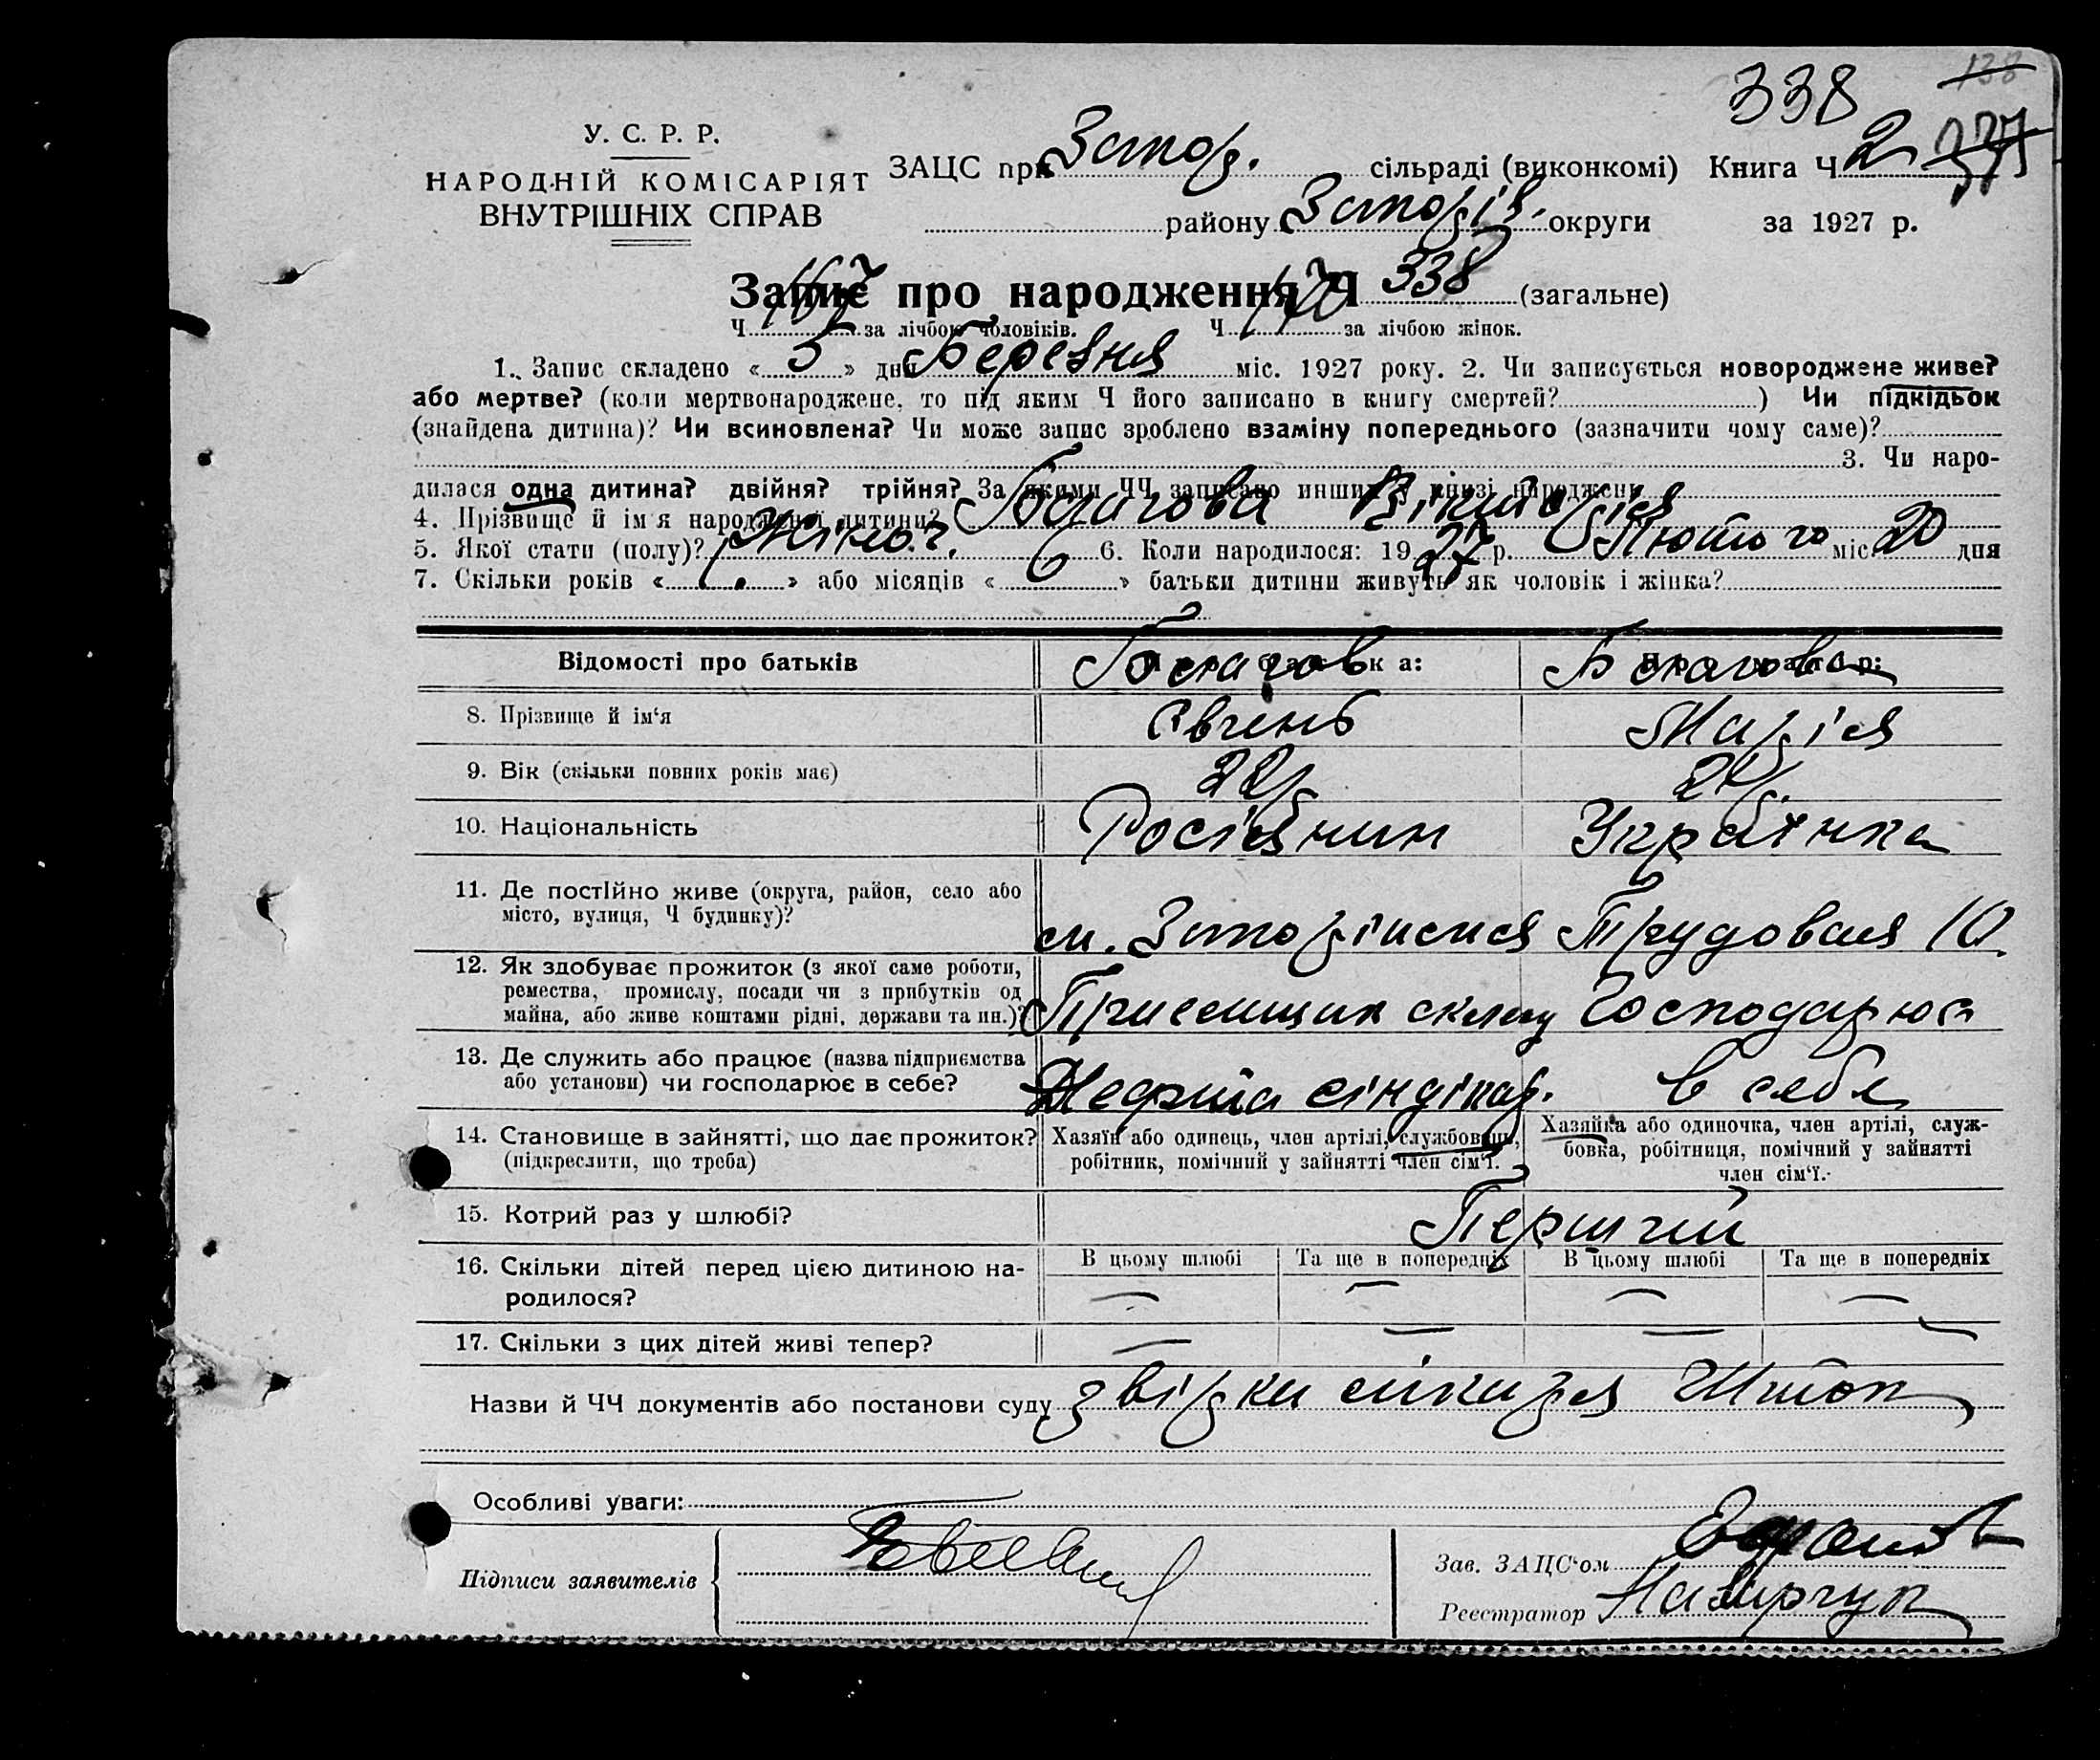 338 138
У. С. Р. Р.
НАРОДНІЙ КОМІСАРІЯТ
ВНУТРІШНІХ СПРАВ
ЗАЦС при Запор. сільраді (виконкомі) Книга Ч 2
району Запоріз. округи за 1927 р.
Запис про народження Ч 338 (загальне)
Ч за лічбою чоловіків. Ч 170 за лічбою жінок.
1. Запис складено « 5 » дня Березня міс. 1927 року. 2. Чи записується новороджене живе?
або мертве? (коли мертвонароджене, то під яким Ч його записано в книгу смертей? ) Чи підкідьок
(знайдена дитина)? Чи всиновлена? Чи може запис зроблено взаміну попереднього (зазначити чому саме)?
3. Чи наро-
дилася одна дитина? двійня? трійня? За якими ЧЧ записано инших у книзі народжень
4. Прізвище й ім'я народженої дитини? Вікторія
5. Якої стати (полу)? Жіноч. 6. Коли народилося: 1927 р. Лютого міс. 20 дня
7. Скільки років « 1. » або місяців « 6 » батьки дитини живуть як чоловік і жінка?
Відомості про батьків Про батька: Про матір:
8. Прізвище й ім'я Євгень Марія
9. Вік (скільки повних років має) 22р
10. Національність Росіянин Українка
11. Де постійно живе (округа, район, село або
місто, вулиця, Ч будинку)? м. Запоріжжя Трудовая 10
12. Як здобуває прожиток (з якої саме роботи,
ремества, промислу, посади чи з прибутків од
майна, або живе коштами рідні, держави та ин.)? Приемщик складу Господарює
13. Де служить або працює (назва підприємства
або установи) чи господарює в себе? Нефта сіндікат. в себе
14. Становище в зайнятті, що дає прожиток?
(підкреслити, що треба)
Хазяїн або одинець, член артілі, службовець,
робітник, помічний у зайнятті член сім'ї.
Хазяйка або одиночка, член артілі, служ-
бовка, робітниця, помічний у зайнятті
член сім'ї.
15. Котрий раз у шлюбі? Перший
16. Скільки дітей перед цією дитиною на-
родилося?
В цьому шлюбі Та ще в попередніх В цьому шлюбі Та ще в попередніх
— — — —
17. Скільки з цих дітей живі тепер? — — — —
Назви й ЧЧ документів або постанови суду
Особливі уваги:
Підписи заявителів
Зав. ЗАЦС'ом
Реєстратор